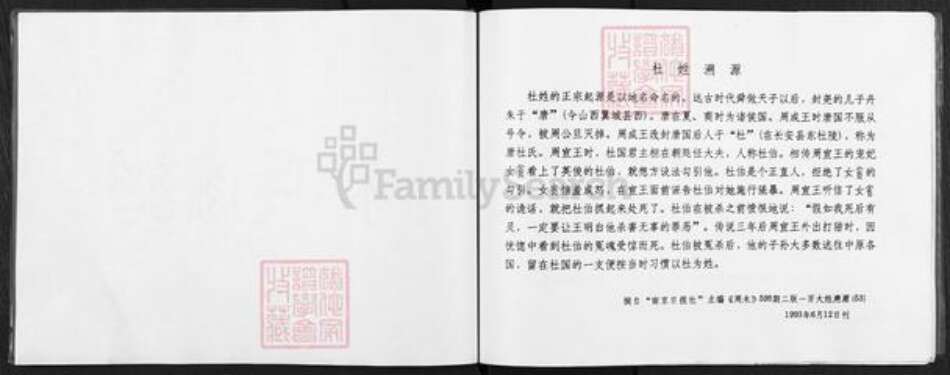 杜姓溯源
杜姓的正宗起源是以地名命名的。远古时代舜做天子以后，封尧的儿子丹
朱于“唐”（今山西翼城县西）。唐在夏、商时为诸侯国。周成王时唐国不服从
号令，被周公旦灭掉。周成王改封唐国后人于“杜”（在长安县东杜陵），称为
唐杜氏。周宣王时，杜国君主桓在朝处任大夫，人称杜伯。相传周宣王的宠妃
女鸠看上了英俊的杜伯，就想方设法勾引他。杜伯是个正直人，拒绝了女鸠的
勾引。女鸠恼羞成怒，在宣王面前诬告杜伯对她施行强暴。周宣王听信了女鸠
的谗话，就把杜伯抓起来处死了。杜伯在被杀之前愤恨地说：“假如我死后有
灵，一定要让王明白他杀害无辜的罪恶”。传说三年后周宣王外出打猎时，因
恍惚中看到杜伯的冤魂受惊而死。杜伯被冤杀后，他的子孙大多数逃往中原各
国，留在杜国的一支便按当时习惯以杜为姓。
摘自“南京日报社”主编《周末》596期二版一百大姓溯源(53)
1993年6月12日刊
FamilySearch